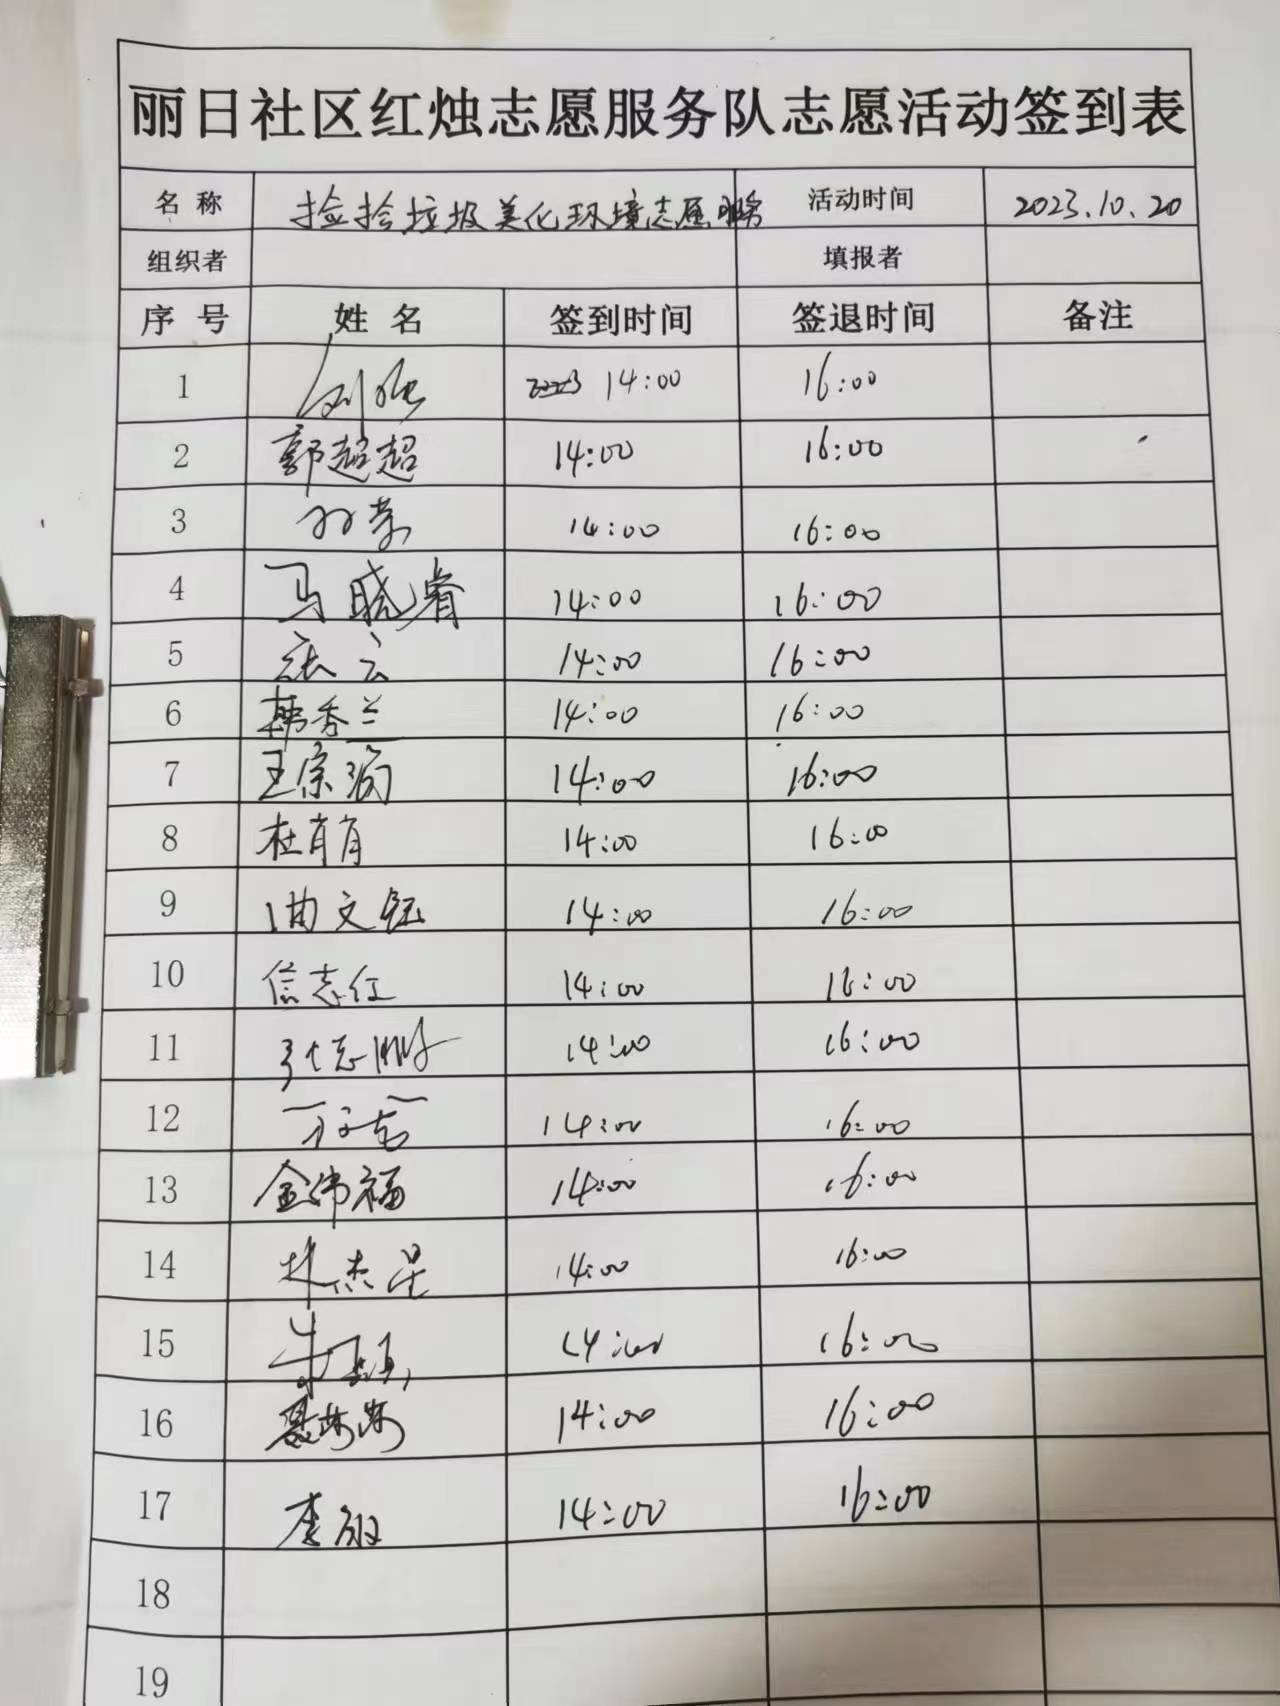 丽日社区红烛志愿服务队志愿活动签到表
名 称 捡拾垃圾美化环境志愿服务 活动时间 2023.10.20
组织者 填报者
序 号 姓 名 签到时间 签退时间 备注
1 14:00 16:00
2 郭超超 14:00 16:00
3 14:00 16:00
4 马晓睿 14:00 16:00
5 14:00 16:00
6 韩秀兰 14:00 16:00
7 王宗瑜 14:00 16:00
8 杜肖肖 14:00 16:00
9 曲文钰 14:00 16:00
10 信志红 14:00 16:00
11 张志鹏 14:00 16:00
12 14:00 16:00
13 金伟福 14:00 16:00
14 杰星 14:00 16:00
15 14:00 16:00
16 14:00 16:00
17 李 14:00 16:00
18
19